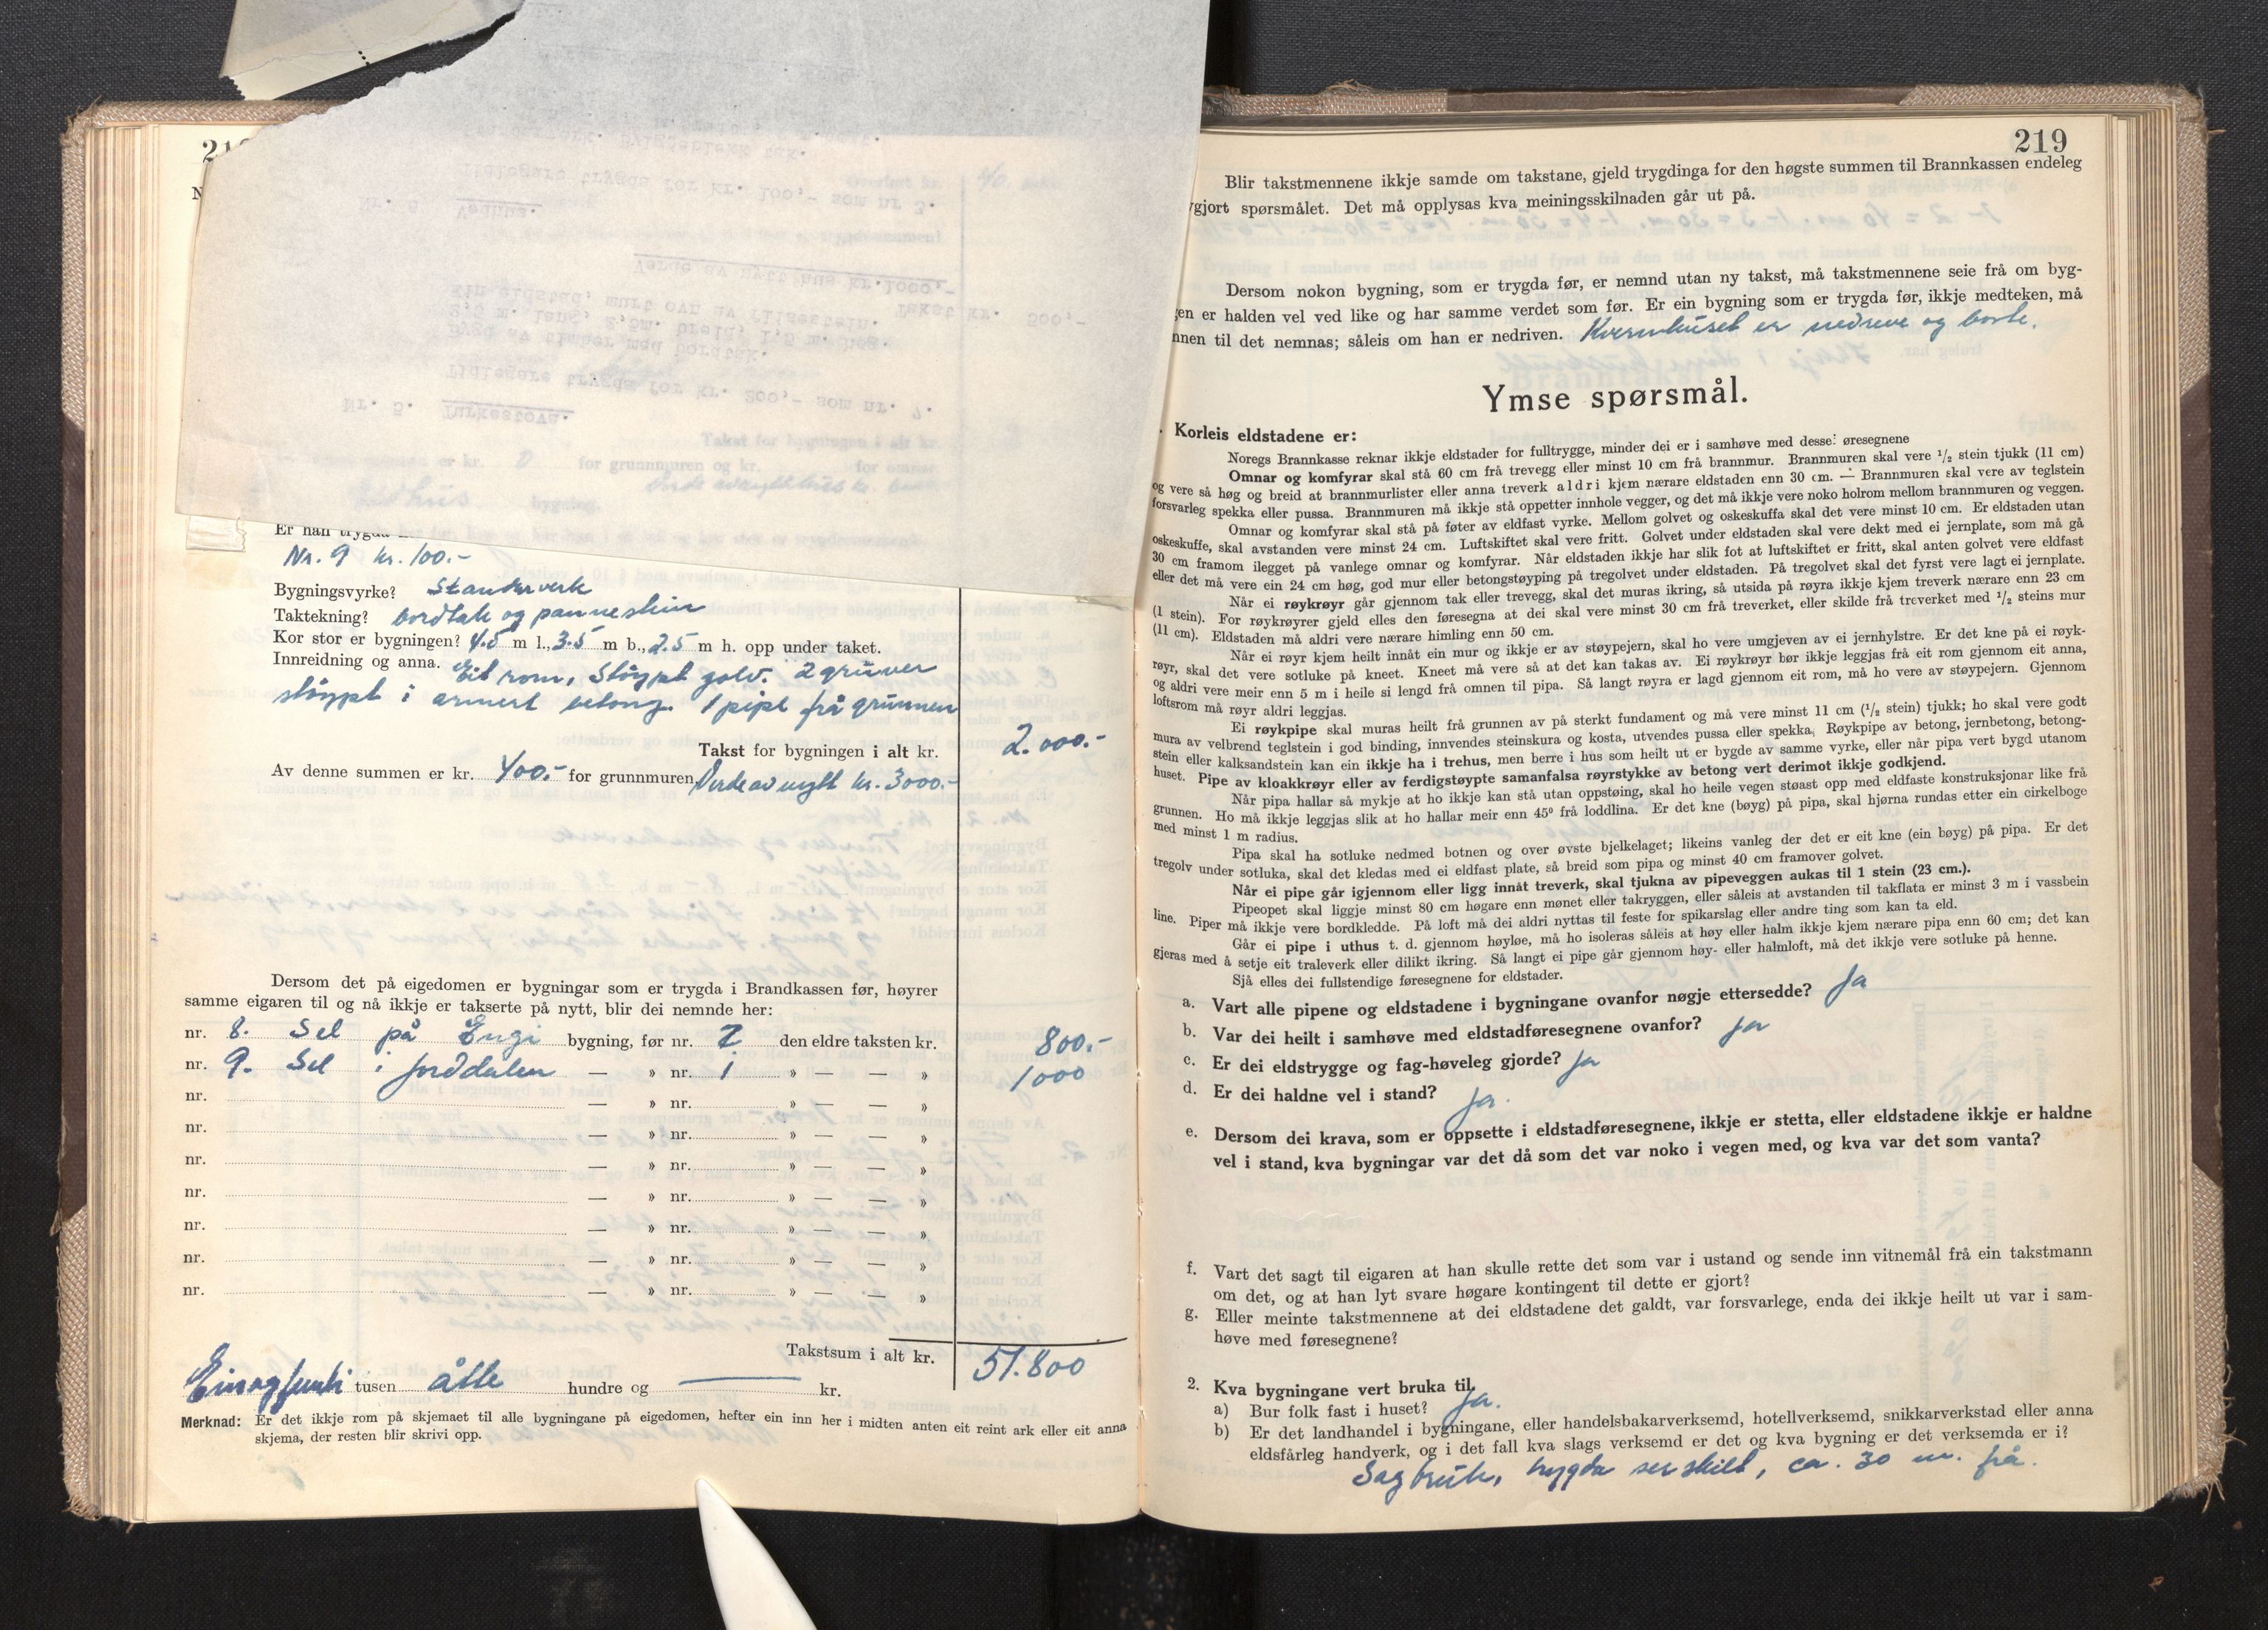 Er han trygda
Nr. 9 kr. 100.-
Bygningsvyrke? Standerverk
Taktekning? bordtak og pannestein
Kor stor er bygningen? 4.5 m l., 3.5 m b., 2.5 m h. opp under taket.
Innreidning og anna. Eit rom, Støypt golv. 2 gruver
støypt i armert betong. 1 pipe frå grunnen
Takst for bygningen i alt kr. 2.000.-
Av denne summen er kr. 400.- for grunnmuren Verde av nytt kr. 3000.-
Dersom det på eigedomen er bygningar som er trygda i Brandkassen før, høyrer
samme eigaren til og nå ikkje er takserte på nytt, blir dei nemnde her:
nr. 8. Sel på Engi bygning, før nr. 2 den eldre taksten kr. 800.-
nr. 9. Sel i Jorddalen — » nr. 1 » — — » 1000
nr. — » nr. » — — »
nr. — » nr. » — — »
nr. — » nr. » — — »
nr. — » nr. » — — »
nr. — » nr. » — — »
nr. — » nr. » — — »
nr. — » nr. » — — »
Takstsum i alt kr. 51.800
Einogfemti tusen åtte hundre og — kr.
Merknad: Er det ikkje rom på skjemaet til alle bygningane på eigedomen, hefter ein inn her i midten anten eit reint ark eller eit anna
skjema, der resten blir skrivi opp.
219
Blir takstmennene ikkje samde om takstane, gjeld trygdinga for den høgste summen til Brannkassen endeleg
gjort spørsmålet. Det må opplysas kva meiningsskilnaden går ut på.
Dersom nokon bygning, som er trygda før, er nemnd utan ny takst, må takstmennene seie frå om byg-
en er halden vel ved like og har samme verdet som før. Er ein bygning som er trygda før, ikkje medteken, må
nnen til det nemnas; såleis om han er nedriven. Kvernhuset er nedreve og borte.
Ymse spørsmål.
Korleis eldstadene er:
Noregs Brannkasse reknar ikkje eldstader for fulltrygge, minder dei er i samhøve med desse: øresegnene
Omnar og komfyrar skal stå 60 cm frå trevegg eller minst 10 cm frå brannmur. Brannmuren skal vere 1/2 stein tjukk (11 cm)
og vere så høg og breid at brannmurlister eller anna treverk aldri kjem nærare eldstaden enn 30 cm. — Brannmuren skal vere av teglstein
forsvarleg spekka eller pussa. Brannmuren må ikkje stå oppetter innhole vegger, og det må ikkje vere noko holrom mellom brannmuren og veggen.
Omnar og komfyrar skal stå på føter av eldfast vyrke. Mellom golvet og oskeskuffa skal det vere minst 10 cm. Er eldstaden utan
oskeskuffe, skal avstanden vere minst 24 cm. Luftskiftet skal vere fritt. Golvet under eldstaden skal vere dekt med ei jernplate, som må gå
30 cm framom ilegget på vanlege omnar og komfyrar. Når eldstaden ikkje har slik fot at luftskiftet er fritt, skal anten golvet vere eldfast
eller det må vere ein 24 cm høg, god mur eller betongstøyping på tregolvet under eldstaden. På tregolvet skal det fyrst vere lagt ei jernplate.
Når ei røykrøyr går gjennom tak eller trevegg, skal det muras ikring, så utsida på røyra ikkje kjem treverk nærare enn 23 cm
(1 stein). For røykrøyrer gjeld elles den føresegna at dei skal vere minst 30 cm frå treverket, eller skilde frå treverket med 1/2 steins mur
(11 cm). Eldstaden må aldri vere nærare himling enn 50 cm.
Når ei røyr kjem heilt innåt ein mur og ikkje er av støypejern, skal ho vere umgjeven av ei jernhylstre. Er det kne på ei røyk-
røyr, skal det vere sotluke på kneet. Kneet må vere så at det kan takas av. Ei røykrøyr bør ikkje leggjas frå eit rom gjennom eit anna,
og aldri vere meir enn 5 m i heile si lengd frå omnen til pipa. Så langt røyra er lagd gjennom eit rom, må ho vere av støypejern. Gjennom
loftsrom må røyr aldri leggjas.
Ei røykpipe skal muras heilt frå grunnen av på sterkt fundament og må vere minst 11 cm (1/2 stein) tjukk; ho skal vere godt
mura av velbrend teglstein i god binding, innvendes steinskura og kosta, utvendes pussa eller spekka. Røykpipe av betong, jernbetong, betong-
stein eller kalksandstein kan ein ikkje ha i trehus, men berre i hus som heilt ut er bygde av samme vyrke, eller når pipa vert bygd utanom
huset. Pipe av kloakkrøyr eller av ferdigstøypte samanfalsa røyrstykke av betong vert derimot ikkje godkjend.
Når pipa hallar så mykje at ho ikkje kan stå utan oppstøing, skal ho heile vegen støast opp med eldfaste konstruksjonar like frå
grunnen. Ho må ikkje leggjas slik at ho hallar meir enn 45° frå loddlina. Er det kne (bøyg) på pipa, skal hjørna rundas etter ein cirkelboge
med minst 1 m radius.
Pipa skal ha sotluke nedmed botnen og over øvste bjelkelaget; likeins vanleg der det er eit kne (ein bøyg) på pipa. Er det
tregolv under sotluka, skal det kledas med ei eldfast plate, så breid som pipa og minst 40 cm framover golvet.
Når ei pipe går igjennom eller ligg innåt treverk, skal tjukna av pipeveggen aukas til 1 stein (23 cm.).
Pipeopet skal liggje minst 80 cm høgare enn mønet eller takryggen, eller såleis at avstanden til takflata er minst 3 m i vassbein
line. Piper må ikkje vere bordkledde. På loft må dei aldri nyttas til feste for spikarslag eller andre ting som kan ta eld.
Går ei pipe i uthus t. d. gjennom høyløe, må ho isoleras såleis at høy eller halm ikkje kjem nærare pipa enn 60 cm; det kan
gjeras med å setje eit traleverk eller dilikt ikring. Så langt ei pipe går gjennom høy- eller halmloft, må det ikkje vere sotluke på henne.
Sjå elles dei fullstendige føresegnene for eldstader.
a. Vart alle pipene og eldstadene i bygningane ovanfor nøgje ettersedde? Ja
b. Var dei heilt i samhøve med eldstadføresegnene ovanfor? Ja
c. Er dei eldstrygge og fag-høveleg gjorde? Ja
d. Er dei haldne vel i stand? Ja.
e. Dersom dei krava, som er oppsette i eldstadføresegnene, ikkje er stetta, eller eldstadene ikkje er haldne
vel i stand, kva bygningar var det då som det var noko i vegen med, og kva var det som vanta?
f. Vart det sagt til eigaren at han skulle rette det som var i ustand og sende inn vitnemål frå ein takstmann
om det, og at han lyt svare høgare kontingent til dette er gjort?
g. Eller meinte takstmennene at dei eldstadene det galdt, var forsvarlege, enda dei ikkje heilt ut var i sam-
høve med føresegnene?
2. Kva bygningane vert bruka til.
a) Bur folk fast i huset? Ja.
b) Er det landhandel i bygningane, eller handelsbakarverksemd, hotellverksemd, snikkarverkstad eller anna
eldsfårleg handverk, og i det fall kva slags verksemd er det og kva bygning er det verksemda er i?
Sagbruk, trygda serskilt, ca. 30 m. frå.